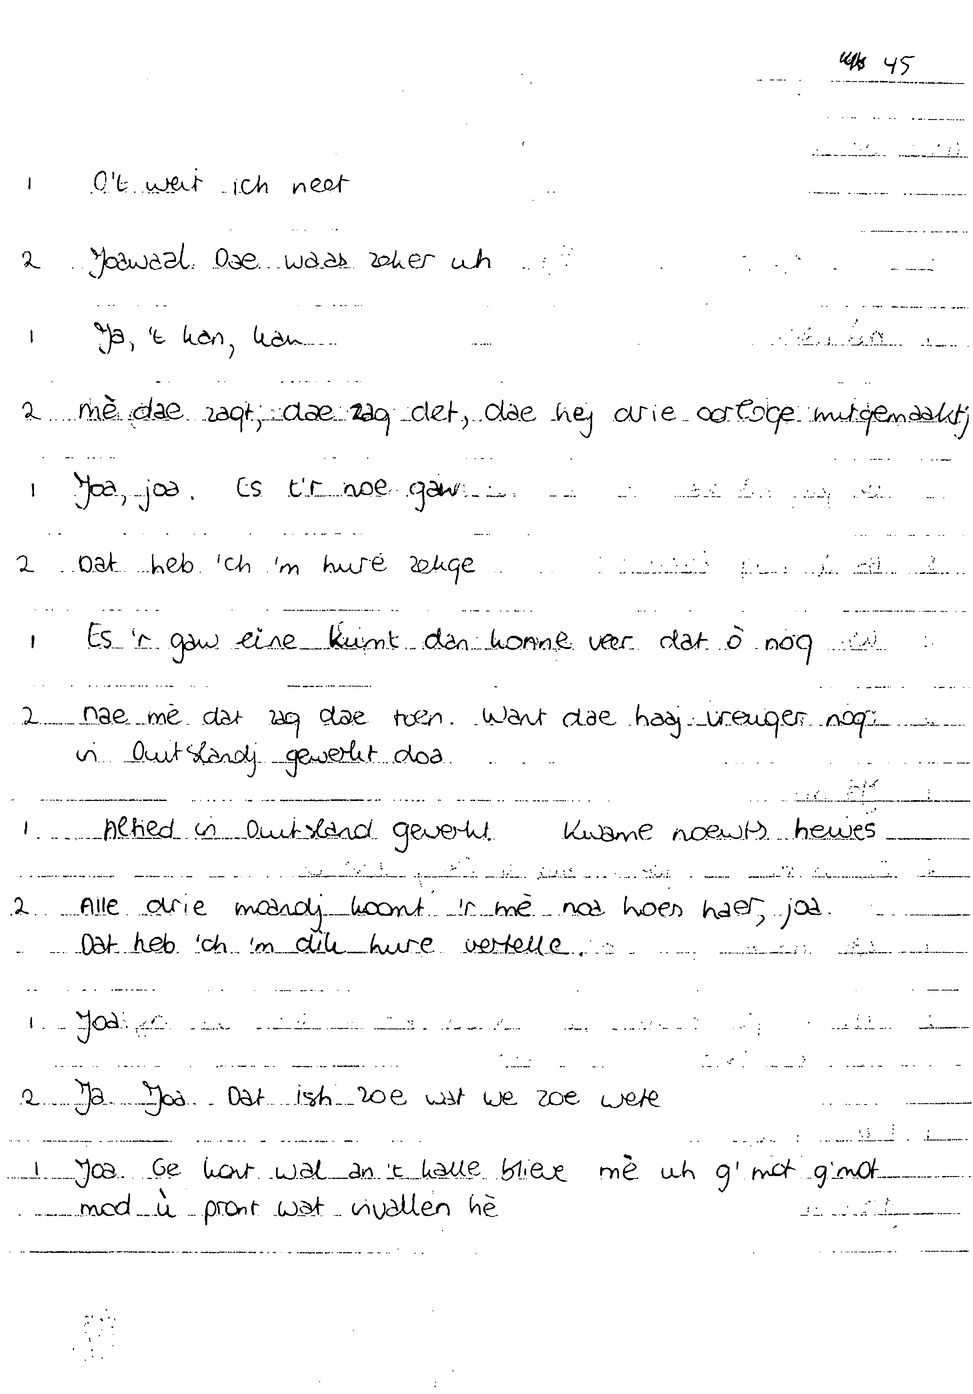 45
1 O't weit ich neet
2 Joawaal. Dae waas zeker uh
1 Ja, 't kan, kan
2 mè dae zagt, dae zag det, dae hej drie oorloge mitgemaaktj
1 Joa, joa. Es t'r noe gaw
2 Dat heb 'ch 'm hure zekge
1 Es 'r gaw eine kumt dan konne veer dat ò nog
2 nae mè dat zag dae toen. Want dae haaj vreuger nog
in Duitslandj gewerkt doa
1 Altied in Duitsland gewerkt Kwame noewts hewes
2 Alle drie moandj koomt 'r mè noa hoes haer, joa.
Dat heb 'ch 'm dik hure vertelle.
1 Joa
2 Ja Joa. Dat ish zoe wat we zoe wete
1 Joa. Ge kont wal an 't kalle blieve mè uh g'mot g'mot
mod ù pront wat invallen hè